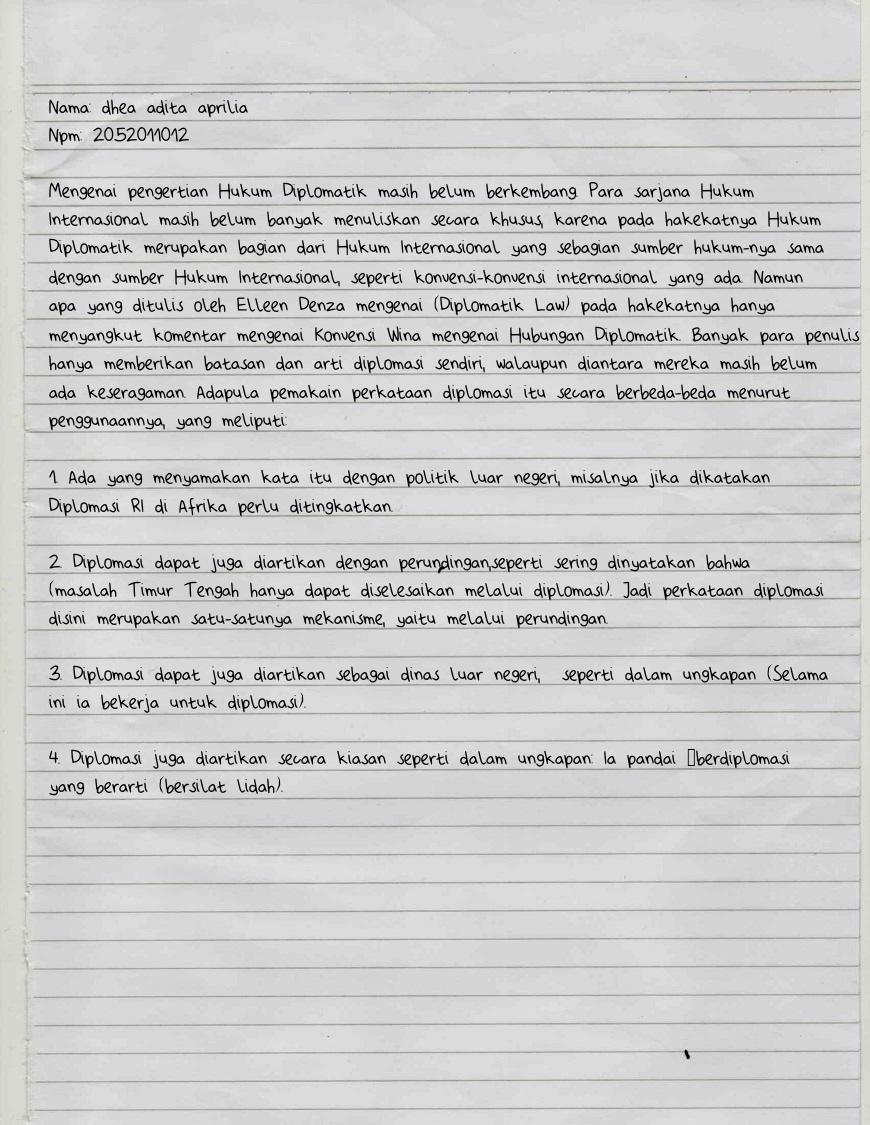 Nama: dhea adita aprilia
Npm: 2052011012
Mengenai pengertian Hukum Diplomatik masih belum berkembang. Para sarjana Hukum
Internasional masih belum banyak menuliskan secara khusus, karena pada hakekatnya Hukum
Diplomatik merupakan bagian dari Hukum Internasional yang sebagian sumber hukum-nya sama
dengan sumber Hukum Internasional, seperti konvensi-konvensi internasional yang ada. Namun
apa yang ditulis oleh Elleen Denza mengenai (Diplomatik Law) pada hakekatnya hanya
menyangkut komentar mengenai Konvensi Wina mengenai Hubungan Diplomatik. Banyak para penulis
hanya memberikan batasan dan arti diplomasi sendiri, walaupun diantara mereka masih belum
ada keseragaman. Adapula pemakain perkataan diplomasi itu secara berbeda-beda menurut
penggunaannya, yang meliputi:
1. Ada yang menyamakan kata itu dengan politik luar negeri, misalnya jika dikatakan
Diplomasi RI di Afrika perlu ditingkatkan.
2. Diplomasi dapat juga diartikan dengan perundingan,seperti sering dinyatakan bahwa
(masalah Timur Tengah hanya dapat diselesaikan melalui diplomasi). Jadi perkataan diplomasi
disini merupakan satu-satunya mekanisme, yaitu melalui perundingan.
3. Diplomasi dapat juga diartikan sebagai dinas luar negeri, seperti dalam ungkapan (Selama
ini ia bekerja untuk diplomasi).
4. Diplomasi juga diartikan secara kiasan seperti dalam ungkapan: Ia pandai berdiplomasi
yang berarti (bersilat lidah).